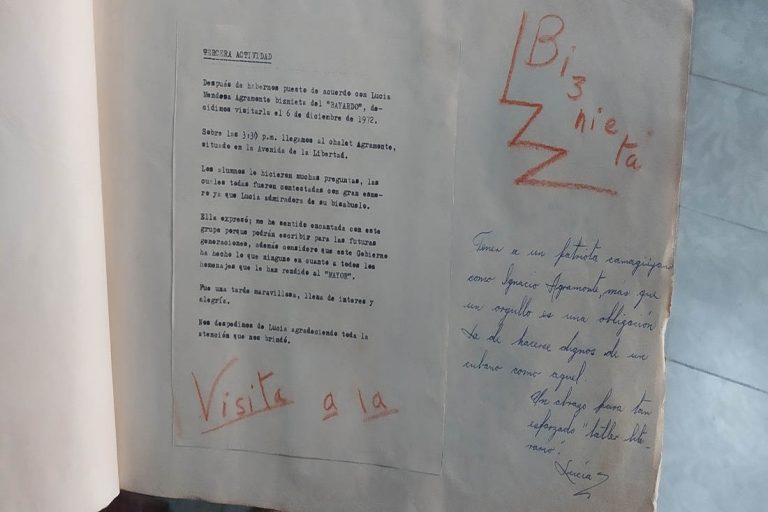 TERCERA ACTIVIDAD
Después de habernos puesto de acuerdo con Lucia
Mendoza Agramonte biznieta del "BAYARDO", de-
cidimos visitarla el 6 de diciembre de 1972.
Sobre las 3:30 p.m. llegamos al chalet Agramonte,
situado en la Avenida de la Libertad.
Los alumnos le hicieron muchas preguntas, las
cuales todas fueron contestadas con gran esme-
ro ya que Lucia admiradora de su bisabuelo.
Ella expresó; me he sentido encantada con este
grupo porque podrán escribir para las futuras
generaciones, además considero que este Gobierno
ha hecho lo que ninguno en cuanto a todos los
homenajes que le han rendido al "MAYOR".
Fue una tarde maravillosa, llena de interes y
alegría.
Nos despedimos de Lucia agradeciendo toda la
atención que nos brindó.
Visita a la
Biznieta
Tener a un patriota camagüeyano
como Ignacio Agramonte, más que
un orgullo es una obligación
La de hacerse dignos de un
cubano como aquel.
Un abrazo para tan
esforzado "taller lite-
rario".
Lucia